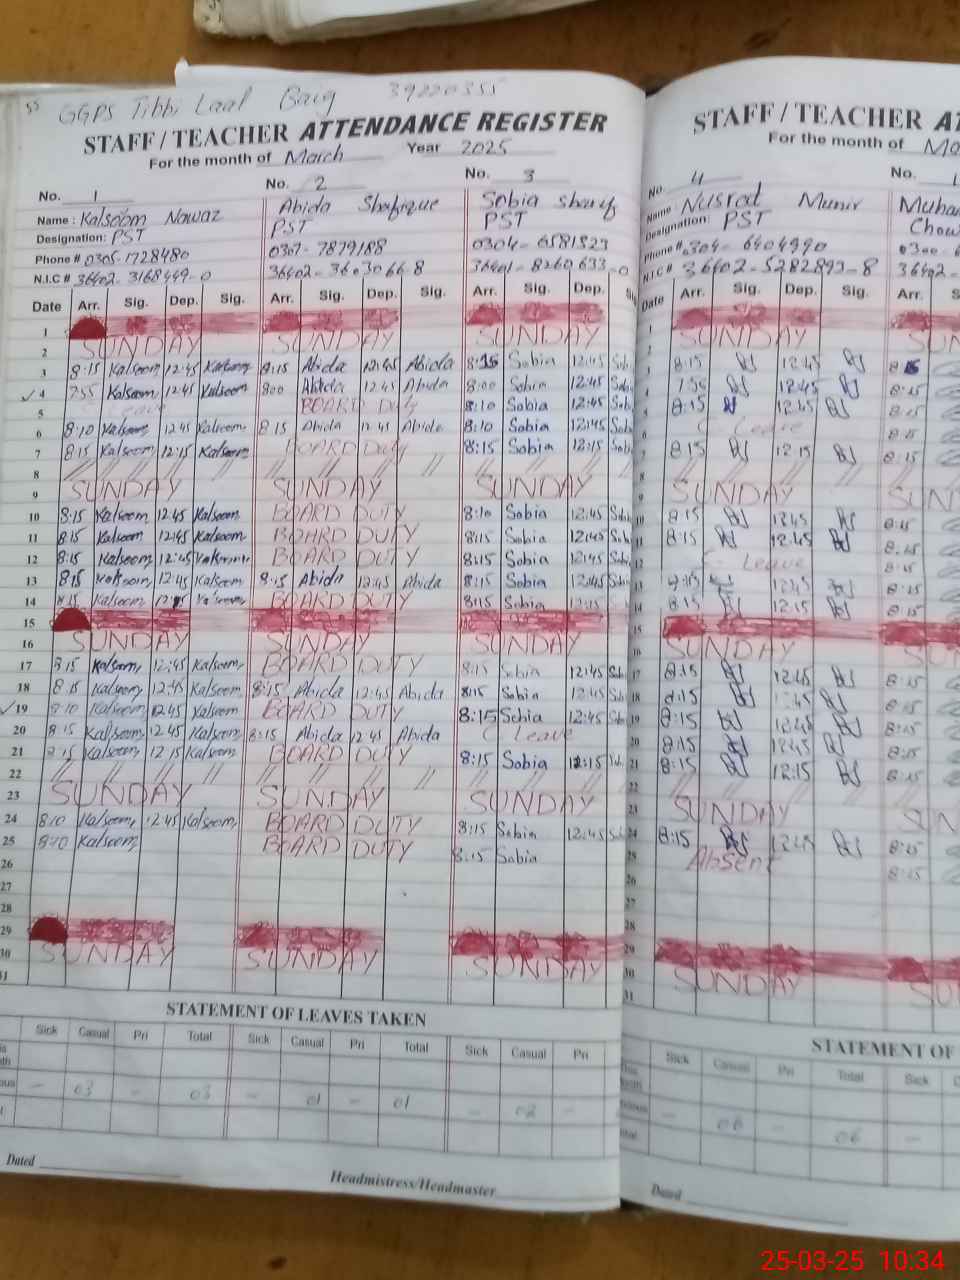 55 GGPS Tibbi Laal Baig 39220355
STAFF / TEACHER ATTENDANCE REGISTER
For the month of March Year 2025
No. 1
Name : Kalsoom Nawaz
Designation: PST
Phone # 0305-1728480
N.I.C # 36402-3168449-0
No. 2
Abida Shafique
PST
0307-7879188
36402-3603066-8
No. 3
Sobia Sharif
PST
0304-6581323
36401-8260633-0
Date Arr. Sig. Dep. Sig. Arr. Sig. Dep. Sig. Arr. Sig. Dep. Sig
1
2 SUNDAY SUNDAY SUNDAY
3 8:15 Kalsoom 12:45 Kalsoom 8:15 Abida 12:45 Abida 8:15 Sobia 12:45 Sob
4 7:55 Kalsoom 12:45 Kalsoom 8:00 Abida 12:45 Abida 8:00 Sobia 12:45 Sob
5 Leave BOARD Duty 8:10 Sobia 12:45 Sob
6 8:10 Kalsoom 12:45 Kalsoom 8:15 Abida 12:45 Abida 8:10 Sobia 12:45 Sob
7 8:15 Kalsoom 12:15 Kalsoom BOARD Duty 8:15 Sobia 12:15 Sob
8 // // // // // // // // // // //
9 SUNDAY SUNDAY SUNDAY
10 8:15 Kalsoom 12:45 Kalsoom BOARD DUTY 8:10 Sobia 12:45 Sob
11 8:15 Kalsoom 12:45 Kalsoom BOARD DUTY 8:15 Sobia 12:45 Sob
12 8:15 Kalsoom 12:45 Kalsoom BOARD DUTY 8:15 Sobia 12:45 Sob
13 8:15 Kalsoom 12:45 Kalsoom 8:15 Abida 12:45 Abida 8:15 Sobia 12:45 Sob
14 8:15 Kalsoom 12:15 Kalsoom BOARD DUTY 8:15 Sobia 12:15
15
16 SUNDAY SUNDAY SUNDAY
17 8:15 Kalsoom 12:45 Kalsoom BOARD DUTY 8:15 Sobia 12:45 Sob
18 8:15 Kalsoom 12:45 Kalsoom 8:15 Abida 12:45 Abida 8:15 Sobia 12:45 Sob
19 8:10 Kalsoom 12:45 Kalsoom BOARD DUTY 8:15 Sobia 12:45 Sob
20 8:15 Kalsoom 12:45 Kalsoom 8:15 Abida 12:45 Abida C Leave
21 8:15 Kalsoom 12:15 Kalsoom BOARD DUTY 8:15 Sobia 12:15 Sob
22 // // // // // // // // // // //
23 SUNDAY SUNDAY SUNDAY
24 8:10 Kalsoom 12:45 Kalsoom BOARD DUTY 8:15 Sobia 12:45 Sob
25 8:10 Kalsoom BOARD DUTY 8:15 Sobia
26
27
28
29
30 SUNDAY SUNDAY SUNDAY
31
STATEMENT OF LEAVES TAKEN
Sick Casual Pri Total Sick Casual Pri Total Sick Casual Pri
- 03 - 03 - 01 - 01 - 02 -
Dated
Headmistress/Headmaster
STAFF / TEACHER AT
For the month of Ma
No. 4
Name : Nusrat Munir
Designation: PST
Phone # 0304-6404990
N.I.C # 36402-5282893-8
No. 1
Muha
Chow
0300-6
36402-
Date Arr. Sig. Dep. Sig. Arr. S
1
2 SUNDAY
3 8:15 12:45 8:15
4 7:55 12:45 8:15
5 8:15 12:45 8:15
6 C Leave 8:15
7 8:15 12:15 8:15
8 // // // //
9 SUNDAY SUN
10 8:15 12:45 8:15
11 8:15 12:45 8:15
12 C- Leave 8:15
13 8:15 12:45 8:15
14 8:15 12:15 8:15
15
16 SUNDAY SU
17 8:15 12:45 8:15
18 8:15 12:45 8:15
19 8:15 12:45 8:15
20 8:15 12:45 8:15
21 8:15 12:15 8:15
22 // // // //
23 SUNDAY SUN
24 8:15 12:45 8:15
25 Absent 8:15
26
27
28
29
30 SUNDAY SU
31
STATEMENT OF
Sick Casual Pri Total Sick C
- 06 - 06 -
Dated
25-03-25 10:34